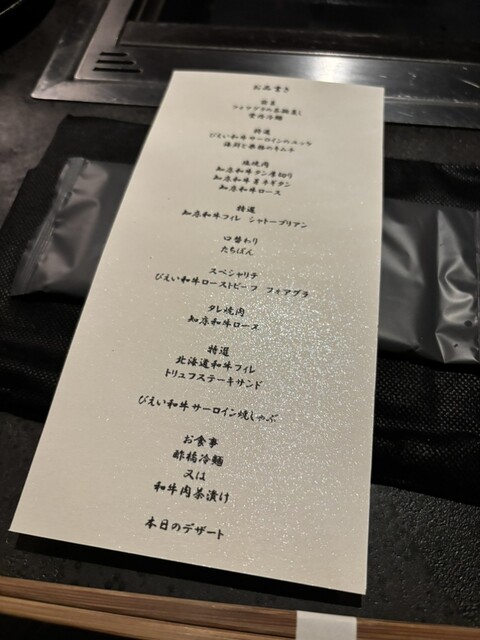 お品書き
前菜
フォアグラの茶碗蒸し
雲丹冷麺
特選
びえい和牛サーロインのユッケ
海胆と
キムチ
塩焼肉
知床和牛タン厚切り
知床和牛葱ネギタン
知床和牛ロース
特選
知床和牛フィレ シャトーブリアン
口替わり
たちぽん
スペシャリテ
びえい和牛ローストビーフ フォアグラ
タレ焼肉
知床和牛ロース
特選
北海道和牛フィレ
トリュフステーキサンド
びえい和牛サーロイン焼しゃぶ
お食事
酢橘冷麺
又は
和牛肉茶漬け
本日のデザート